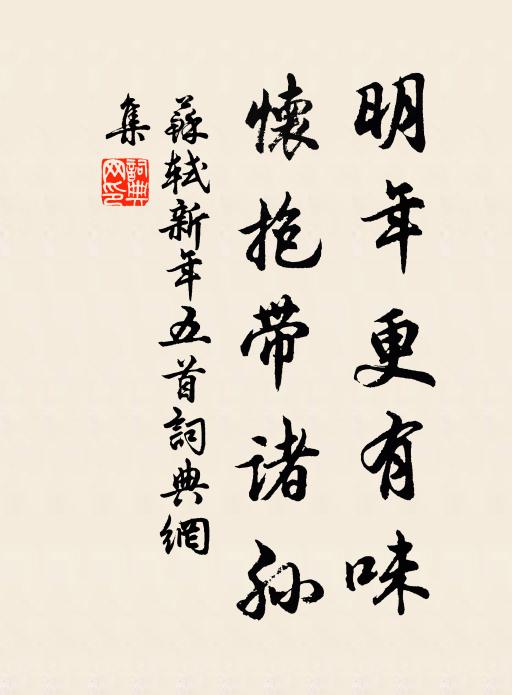 明年更有味
懷抱带诸孫
蘇軾新年五首詞典網
集
詞典網印